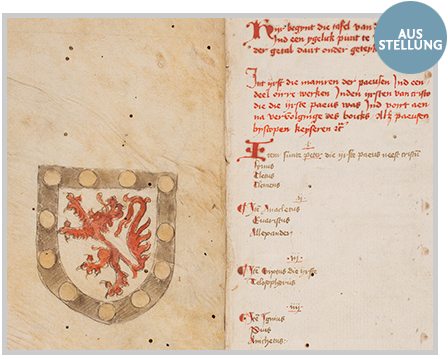 AUS
STELLUNG
Hijr begynt die tafel van d
Ind een ygelick punt te
der getal dair onder getek
Int yrst die namen der paeusen Ind een
deel oire werken Inden yrsten van cristo
die die yrste paeus was Ind vort aen
na vervolginge des boecks Als paeusen
bijscopen keyseren
I
Item sunte peter die yrste paeus neest cristum
Linus
Cletus
Clemens
ij
Item Anacletus
Evaristus
Allexander
iij
Item Sixtus die yrste
Telesphorus
iiij
Item Iginius
Pius
Anichetus